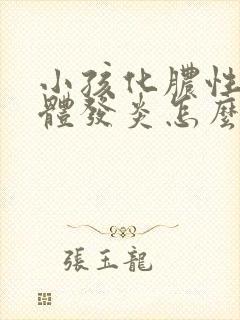 小孩化膿性
體發炎怎麼
張玉龍